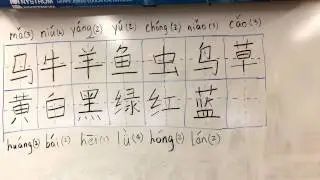 NYSTROM
mǎ(3) niú(2) yáng(2) yú(2) chóng(2) niǎo(3) cǎo(3)
马 牛 羊 鱼 虫 鸟 草
黄 白 黑 绿 红 蓝
huáng(2) bái(2) hēi(1) lǜ(4) hóng(2) lán(2)